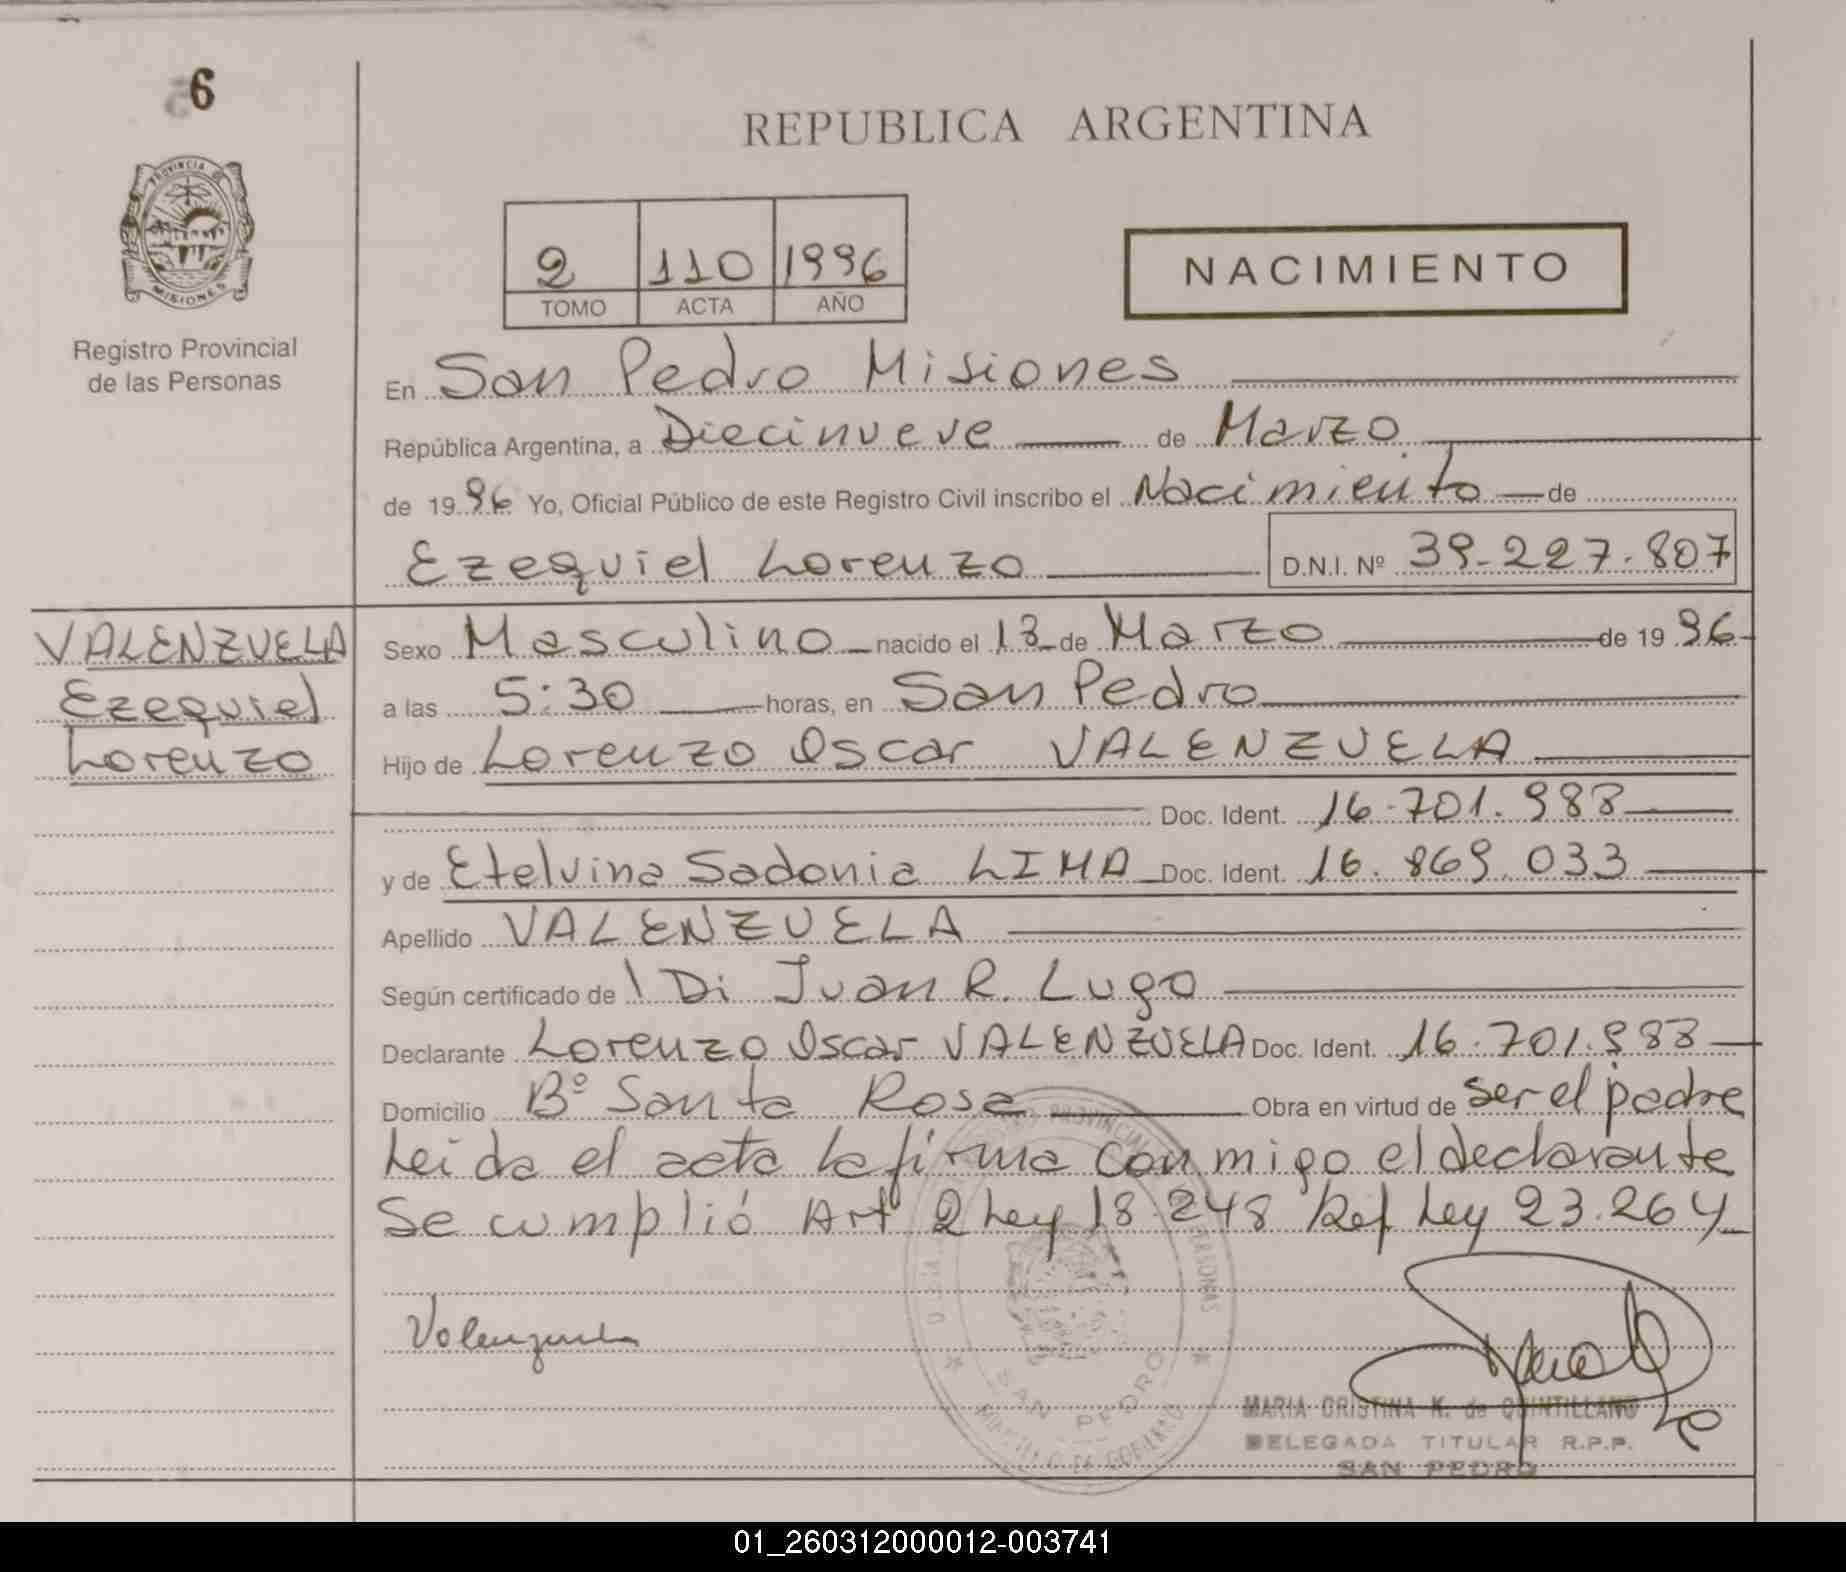 6
REPUBLICA ARGENTINA
PROVINCIA DE
MISIONES
Registro Provincial
de las Personas
2 110 1996
TOMO ACTA AÑO
NACIMIENTO
En San Pedro Misiones
República Argentina, a Diecinueve de Marzo
de 1996 Yo, Oficial Público de este Registro Civil inscribo el Nacimiento de
Ezequiel Lorenzo D.N.I. Nº 39.227.807
VALENZUELA
Ezequiel
Lorenzo
Sexo Masculino nacido el 13 de Marzo de 1996
a las 5:30 horas, en San Pedro
Hijo de Lorenzo Oscar VALENZUELA
Doc. Ident. 16.701.983
y de Etelvina Sadonia LIMA Doc. Ident. 16.869.033
Apellido VALENZUELA
Según certificado de Juan R. Lugo
Declarante Lorenzo Oscar VALENZUELA Doc. Ident. 16.701.983
Domicilio Bº Santa Rosa Obra en virtud de ser el padre
Leida el acta la firma conmigo el declarante
Se cumplió Art 2 Ley 18.248 Ref Ley 23.264
Valenzuela
SAN PEDRO
MARIA CRISTINA K. de QUINTILLANO
DELEGADA TITULAR R.P.P.
SAN PEDRO
01_260312000012-003741